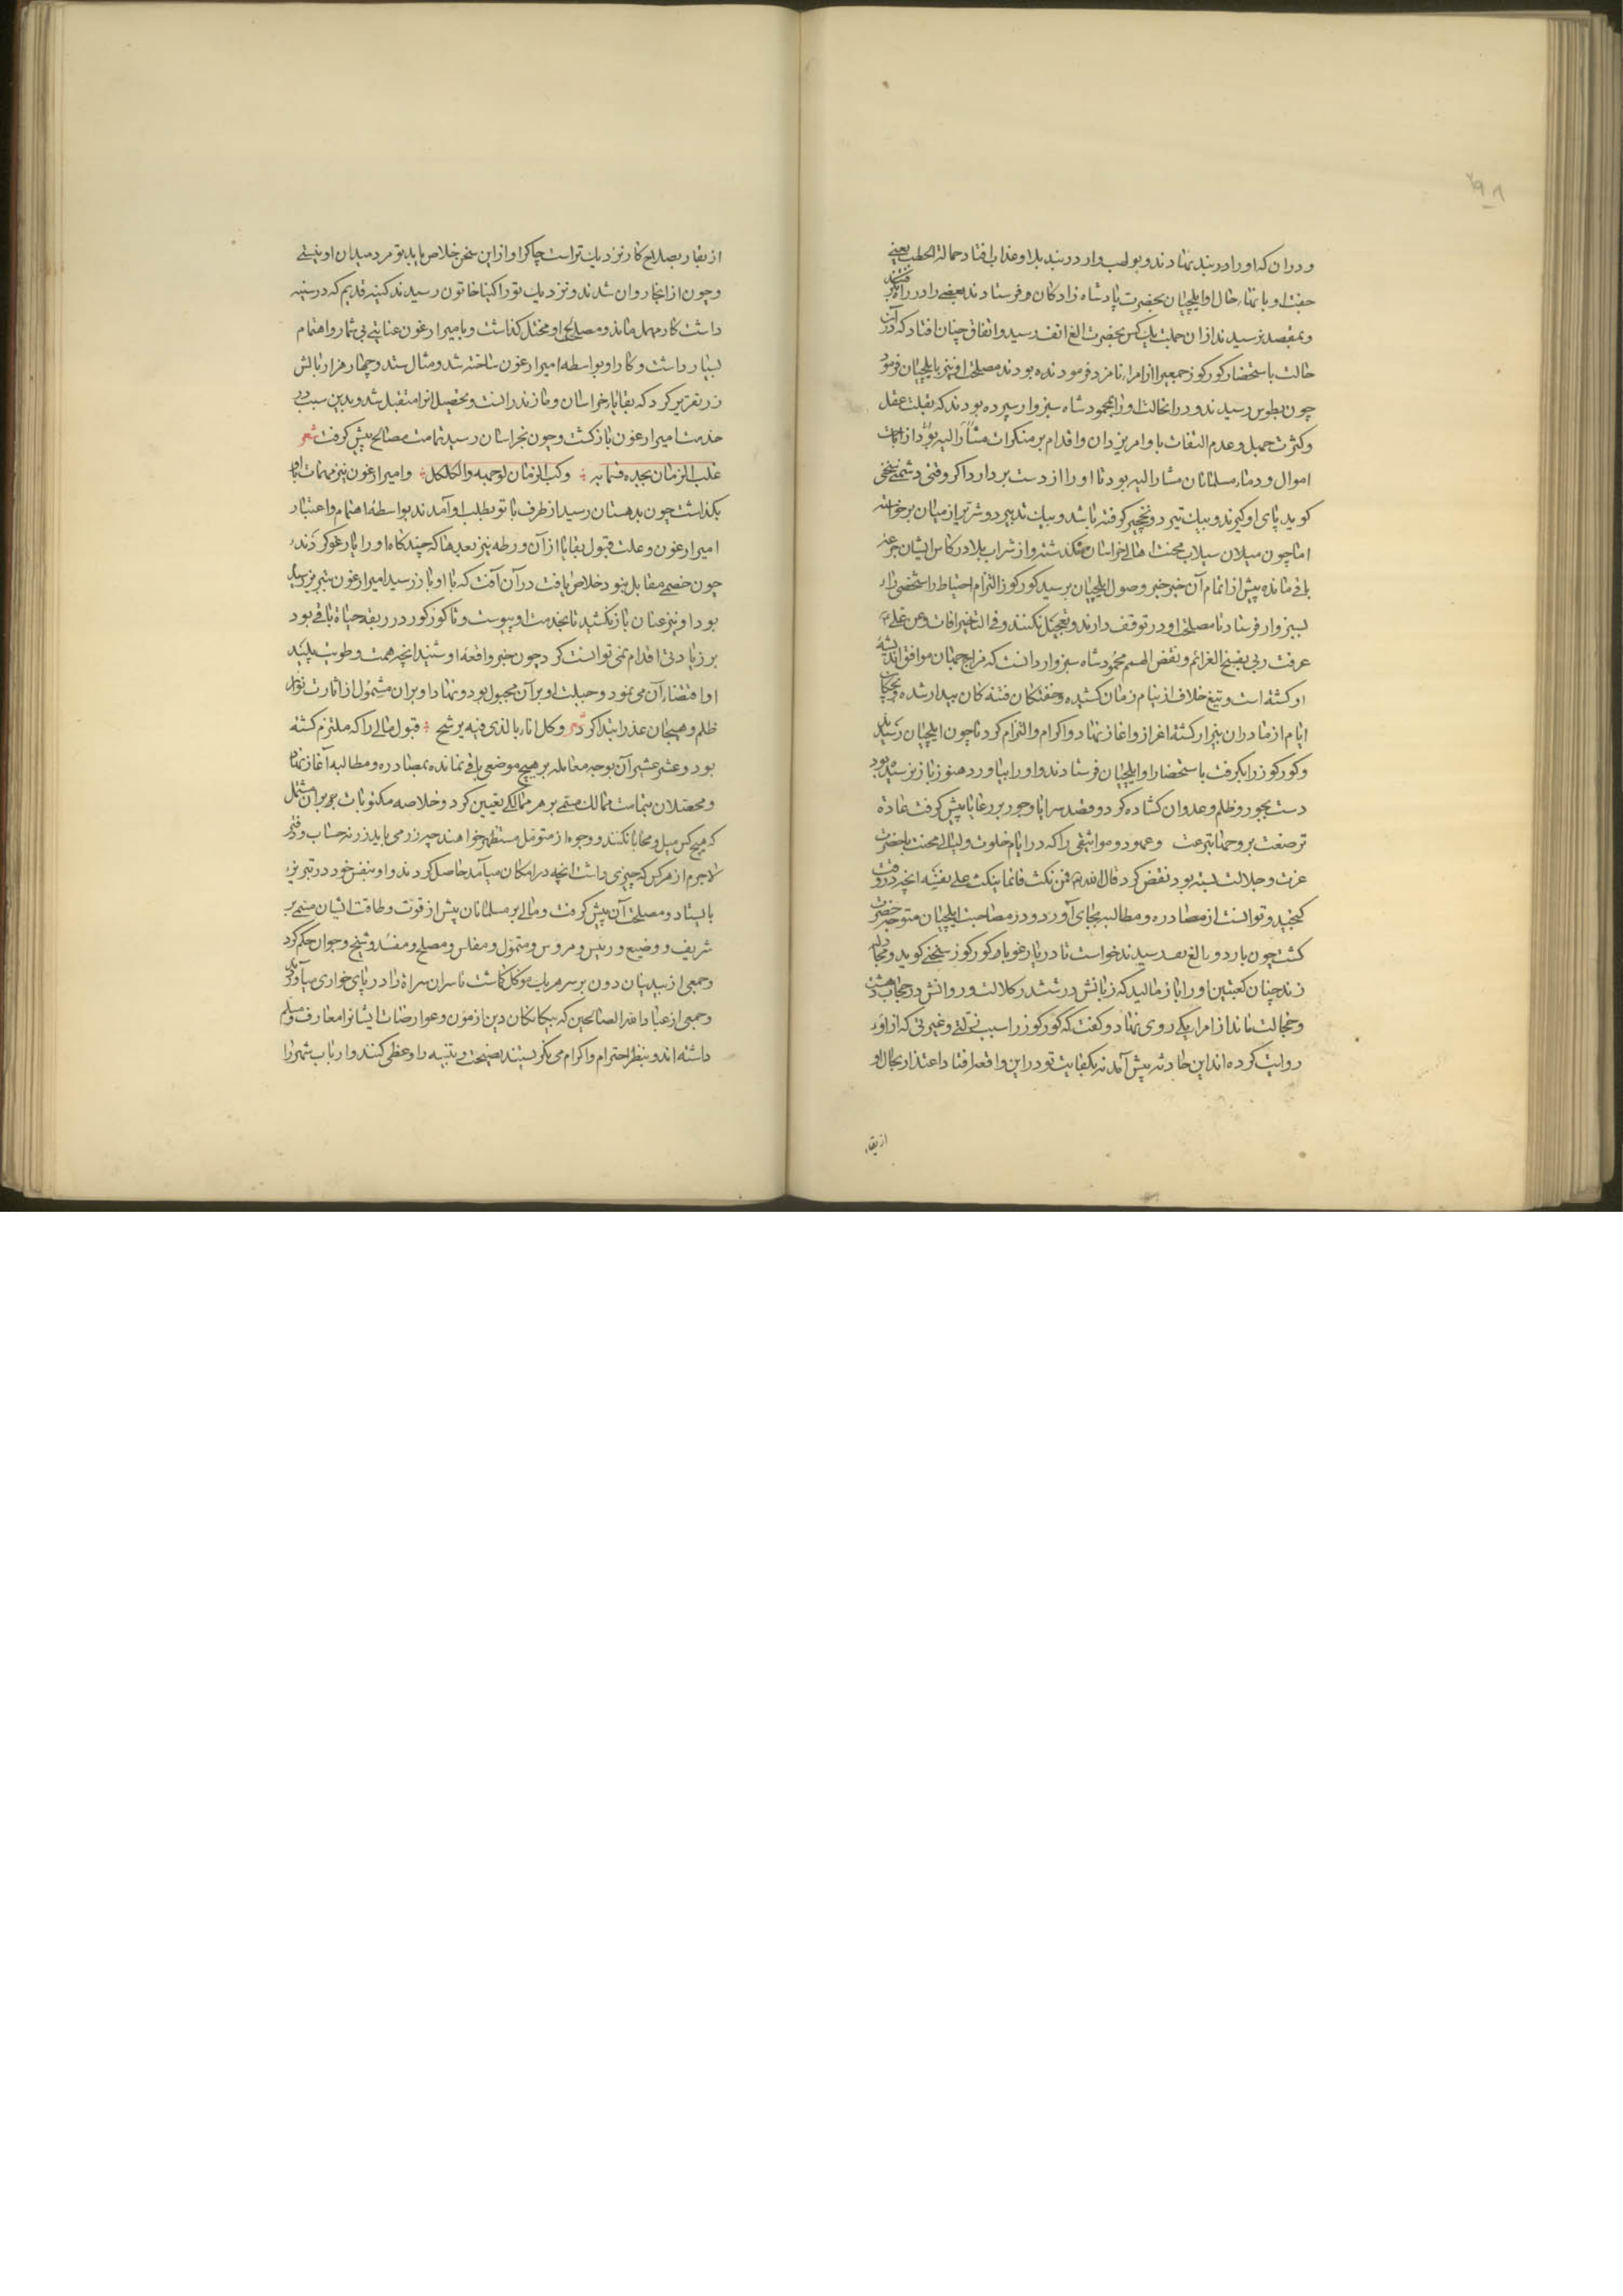 ۲۹۸
ودران که او را در بند نهادند و بولهب وار در بند بلا و عذاب افتاد حمالة الحطب یعنی
جفت او با نهاد حال او ایلچیان بحضرت پادشاه زادکان و فرستادند بعضی را در راه
و بمقصد نرسیدند از ان جملت یک کس بحضرت الغ اتف رسید و اتفاق چنان افتاد که دران
حالت باستحضار کورکوز جمعی را از امراء نامزد فرموده بودند مصلحت او نیز بایلچیان فرمود
چون بطوس رسیدند و در انحالت او را بمحمود شاه سبزوار سپرده بودند که بقلت عقل
و کثرت جهل و عدم التفات باوامر یزدان و اقدام بر منکرات مشارالیه بود از اتلاف
اموال و دماء مسلمانان مشارالیه بود تا او را از دست بردارد اکر وقتی دشمنی سخنی
کوید پای او کیرند و بیک تیر دو نخچیر کرفته باشد و بیک تدبیر دو شریر از میان برخواسته
اما چون میلان سیلاب محنت اهالی خراسان نکذشته و از شراب بلا در کاس ایشان جرعه
باقی مانده پیش از اتمام آن خبر خبر وصول ایلچیان برسید کورکوز التزام احتیاط را شخصی را
بسبزوار فرستاد تا مصلحت او در توقف دارند و تعجیل نکنند و فی التاخیر افات و عن علی
عرفت ربی بفسخ العزائم و نقض الهمم محمود شاه سبزوار دانست که مزاج جهان موافق اندیشه
او کشته است و تیغ خلاف از نیام زمان کشیده و خفتکان فتنه کان بیدار شده
ایام از مادران بیزار کشته اغراز و اعزاز نهاد و اکرام و التزام کرد تا چون ایلچیان رسیدند
و کورکوز را بکرفت باستحضار او ایلچیان فرستادند و او را بیاورد هنوز باز نرسیده بود
دست بجور و ظلم و عدوان کشاده کرد و قصد سرا پا و جور بر رعایا پیش کرفت عادة
ترضعت بروحها تبرعت و عهود و مواثیقی را که در ایام خلوت و لیالی محنت با حضرت
عزت و جلالت بسته بود نقض کرد قال الله فمن نکث فانما ینکث علی نفسه انچه در وقت
کنجید و توانست از مصادره و مطالبه بجای آورد و در مصاحبت ایلچیان متوجه حضرت
کشت چون باردو بالغ بعد رسیدند خواست تا در یارغو با کورکوز سخنی کوید و مجادله
زند چنان کعبتین او را باز مالید که زبانش در ششدر کلالت و روانش در حجاب دهشت
و خجالت ماند از امرا یکی روی نهاد و کفت که کورکوز را سبب نکتی و غیرتی که از او
روایت کرده اند این حادثه پیش آمد نه بکفایت تو در این واقعه افتاد اعتذار بحال او
از بقاء
از بقاء بصلاح کار نزدیک تر است چاکر او از این سخن خلاص یابد تو مرد میدان او نیستی
و چون از انجا روان شدند و نزدیک توراکینا خاتون رسیدند کینه قدیم که در سینه
داشت کار مهمل ماند و مصلحت او مختل کذاشت و بامیر ارغون عنایتی بی شمار و اهتمام
بسیار داشت و کار او بواسطه امیر ارغون ساخته شد و مثال ستد و چهار هزار بالش
زر تقریر کرد که بقایا بر خراسان و مازندرانست و تحصیل انرا متقبل شد و بدین سبب در
خدمت امیر ارغون باز کشت و چون بخراسان رسید تمامت مصالح پیش کرفت شعر
غلب الزمان بجده فسمابه وکب الزمان لوجهه والکلکل و امیر ارغون نیز مهمات باو
بکذاشت چون بدهستان رسید از طرف باتو بطلب او آمدند بواسطه اهتمام و اعتبار
امیر ارغون و علت قبول بقایا از آن ورطه نیز بعدما که چند کاه او را یارغو کردند
چون خصمی مقابل نبود خلاص یافت در آن آفت که تا او باز رسید امیر ارغون بتبریز رسیده
بود او نیز عنان باز نکشید تا بخدمت او پیوست و تا کورکوز در ربقه حیاة باقی بود
بر زیادتی اقدام نمی توانست کرد چون خبر واقعه او شنید انچه همت و طویت پلید
او اقتضاء آن می نمود و جبلت او بر آن مجبول بود و نهاد او بران مشمول از اثارت نوایر
ظلم و هیجان غدر ابتدا کرد و کل اناء بالذی فیه یرشح قبول مالی را که ملتزم کشته
بود و عشر عشیر آن بوجه معامله بر هیچ موضعی باقی نمانده بمصادره و مطالبه آغاز نهاد
و محصلان بتمامت ممالک قسمتی بر هر ممالکی تعیین کرد و خلاصه مکتوبات بر آن مشتمل
که هیچ کس میل و محابا نکنند و وجوه از متوغل مستظهر خواهند چه زر می باید زر نه حساب و دفتر
لاجرم از هر کس که چیزی داشت انچه در امکان میآمد حاصل کردند و او بنفس خود در تبریز
بایستاد و مصلحت آن پیش کرفت و مالی بر مسلمانان بیش از قوت و طاقت ایشان قسمتی بر
شریف و وضیع و رییس و مرءوس و متمول و مفلس و مصلح و مفسد و شیخ و جوان حکم کرد
و جمعی از بیدینان دون بر سر هر یک موکل کماشت تا سران سراة را در پای خواری میآورد
و جمعی از عباد الله الصالحین که بیکانکان دین از مؤن و عوارضات ایشانرا معاف و مسلم
داشته اند و بنظر احترام و اکرام می نکریستند نصیحت و تنبیه را وعظی کنند و ارباب شهر را